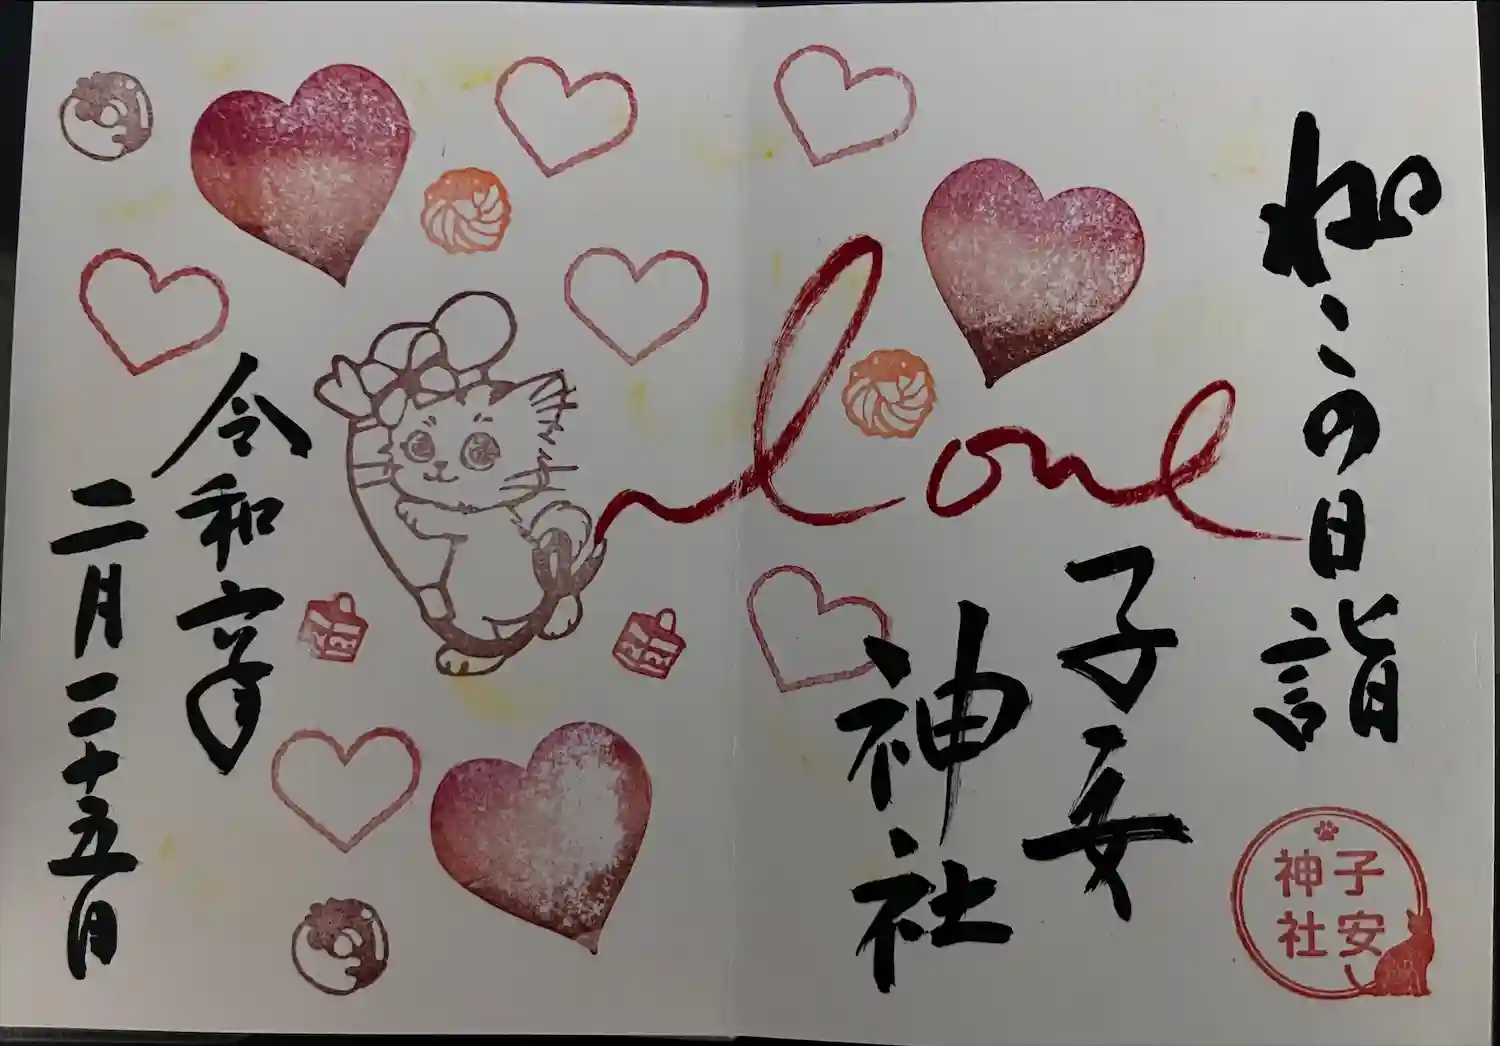 ねこの日詣
子安
神社
love
令和六年
二月二十五日
子安
神社